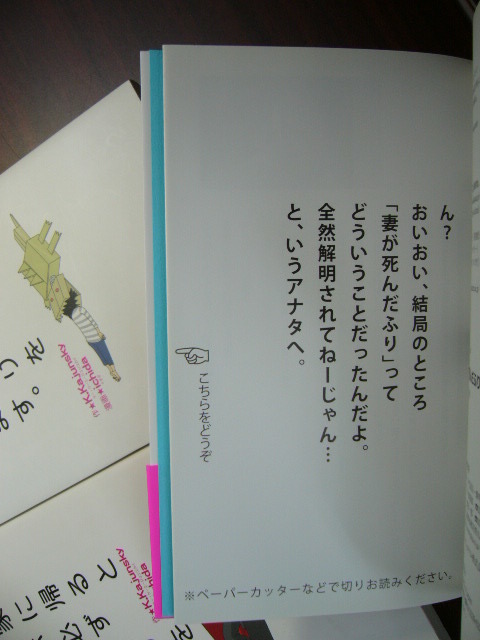 ん？
おいおい、結局のところ
「妻が死んだふり」って
どういうことだったんだよ。
全然解明されてねーじゃん…
と、いうアナタへ。
こちらをどうぞ
※ペーパーカッターなどで切りお読みください。
ます。を
作●K.Kajunsky
漫画●Ichida
K.Kajunsky
hida
に帰ると
必ず
を